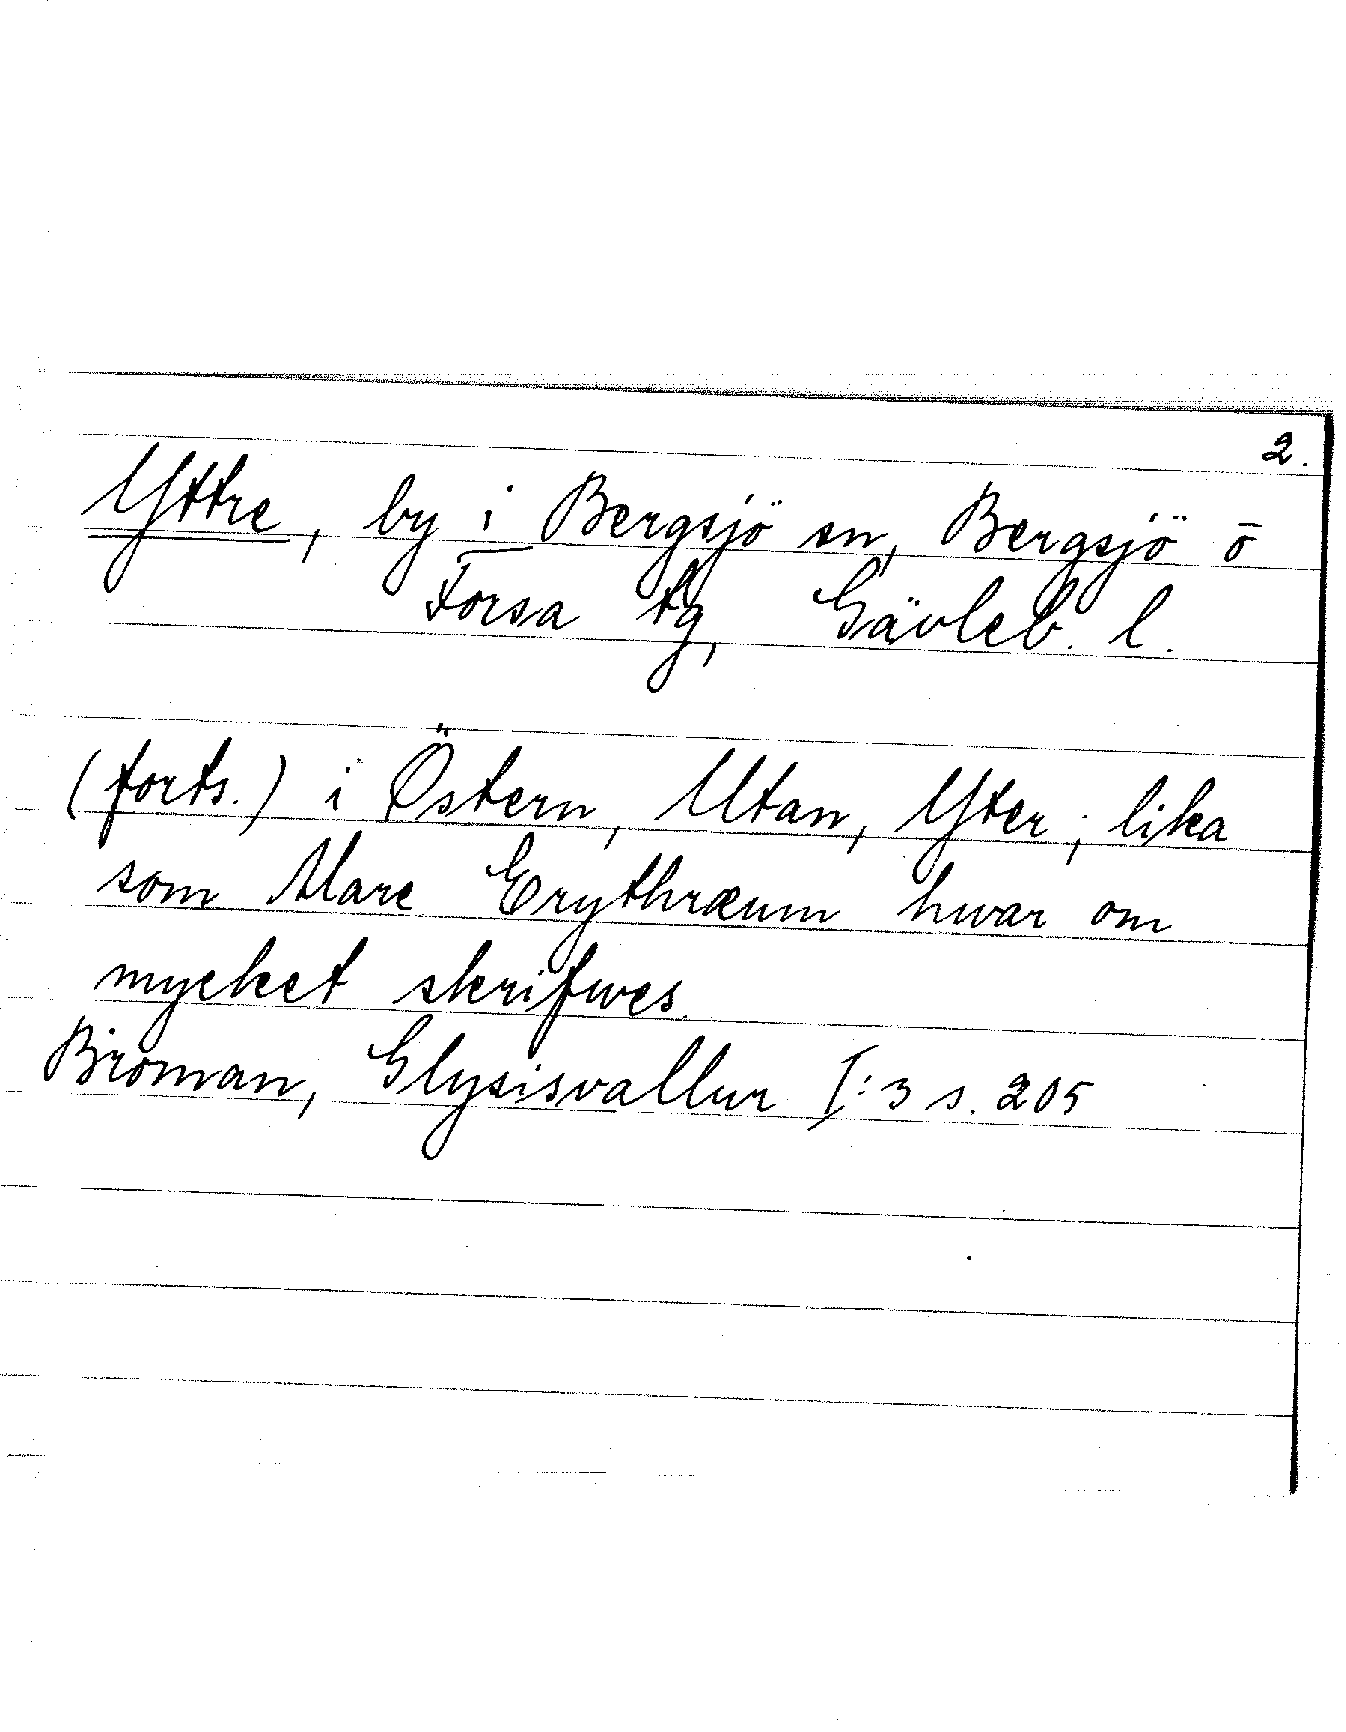 2.
Yttre, by i Bergsjö sn, Bergsjö o
Forsa tg, Gävleb. l.
(forts.) i Östern, Utan, Yter; lika
som Mare Erythræum hwar om
mycket skrifwes.
Broman, Glysisvallur I:3 s. 205